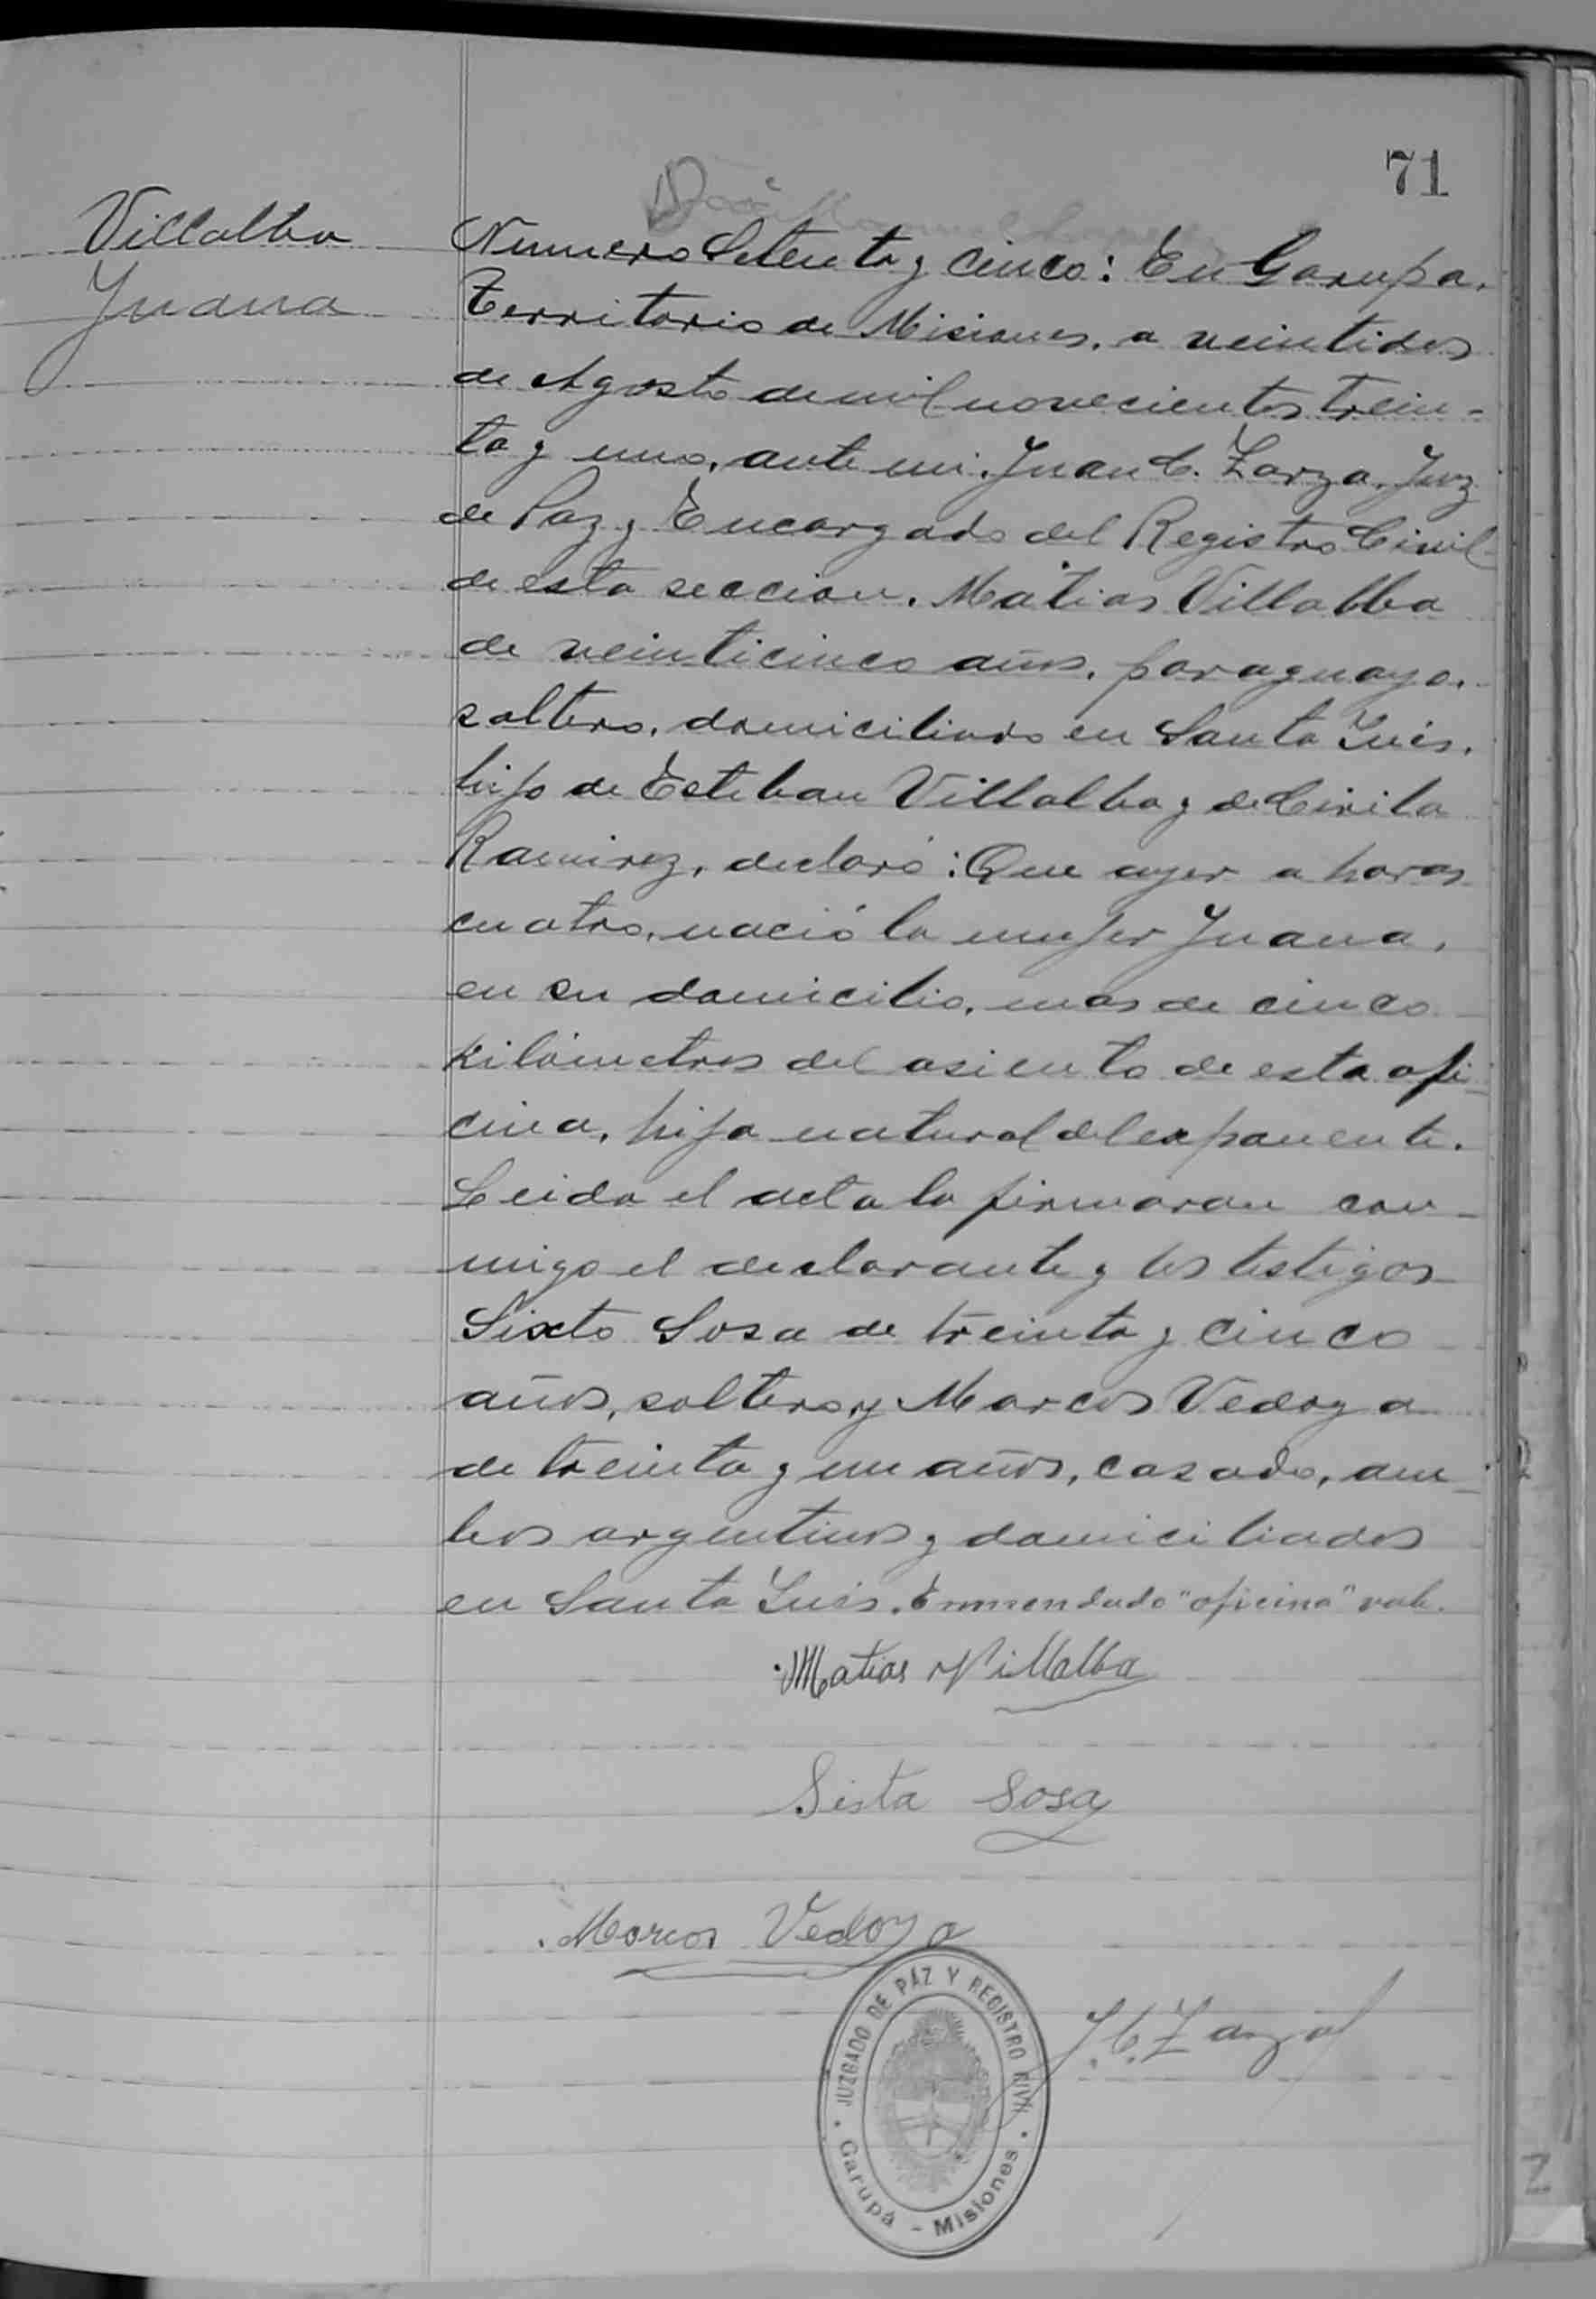 71
Villalba
Juana
Numero Setenta y cinco: En Garupa,
Territorio de Misiones, a veintidos
de Agosto de mil novecientos trein-
ta y uno, ante mi, Juan C. Zarza, Juez
de Paz y Encargado del Registro Civil
de esta seccion. Matias Villalba
de veinticinco años, paraguayo,
soltero, domiciliado en Santa Inés,
hijo de Esteban Villalba y de Cirila
Ramirez, declaró: Que ayer a horas
cuatro, nació la mujer Juana,
en su domicilio, mas de cinco
kilómetros del asiento de esta ofi
cina, hija natural del exponente.
Leida el acta la firmaran con-
migo el declarante y los testigos
Sixto Sosa de treinta y cinco
años, soltero y Marcos Vedoya
de treinta y un años, casado, am
bos argentinos y domiciliados
en Santa Inés. Enmendado "oficina" vale.
Matias Villalba
Sista Sosa
Marcos Vedoya
J. C. Zarza
JUZGADO DE PAZ Y REGISTRO CIVIL
Garupá - Misiones